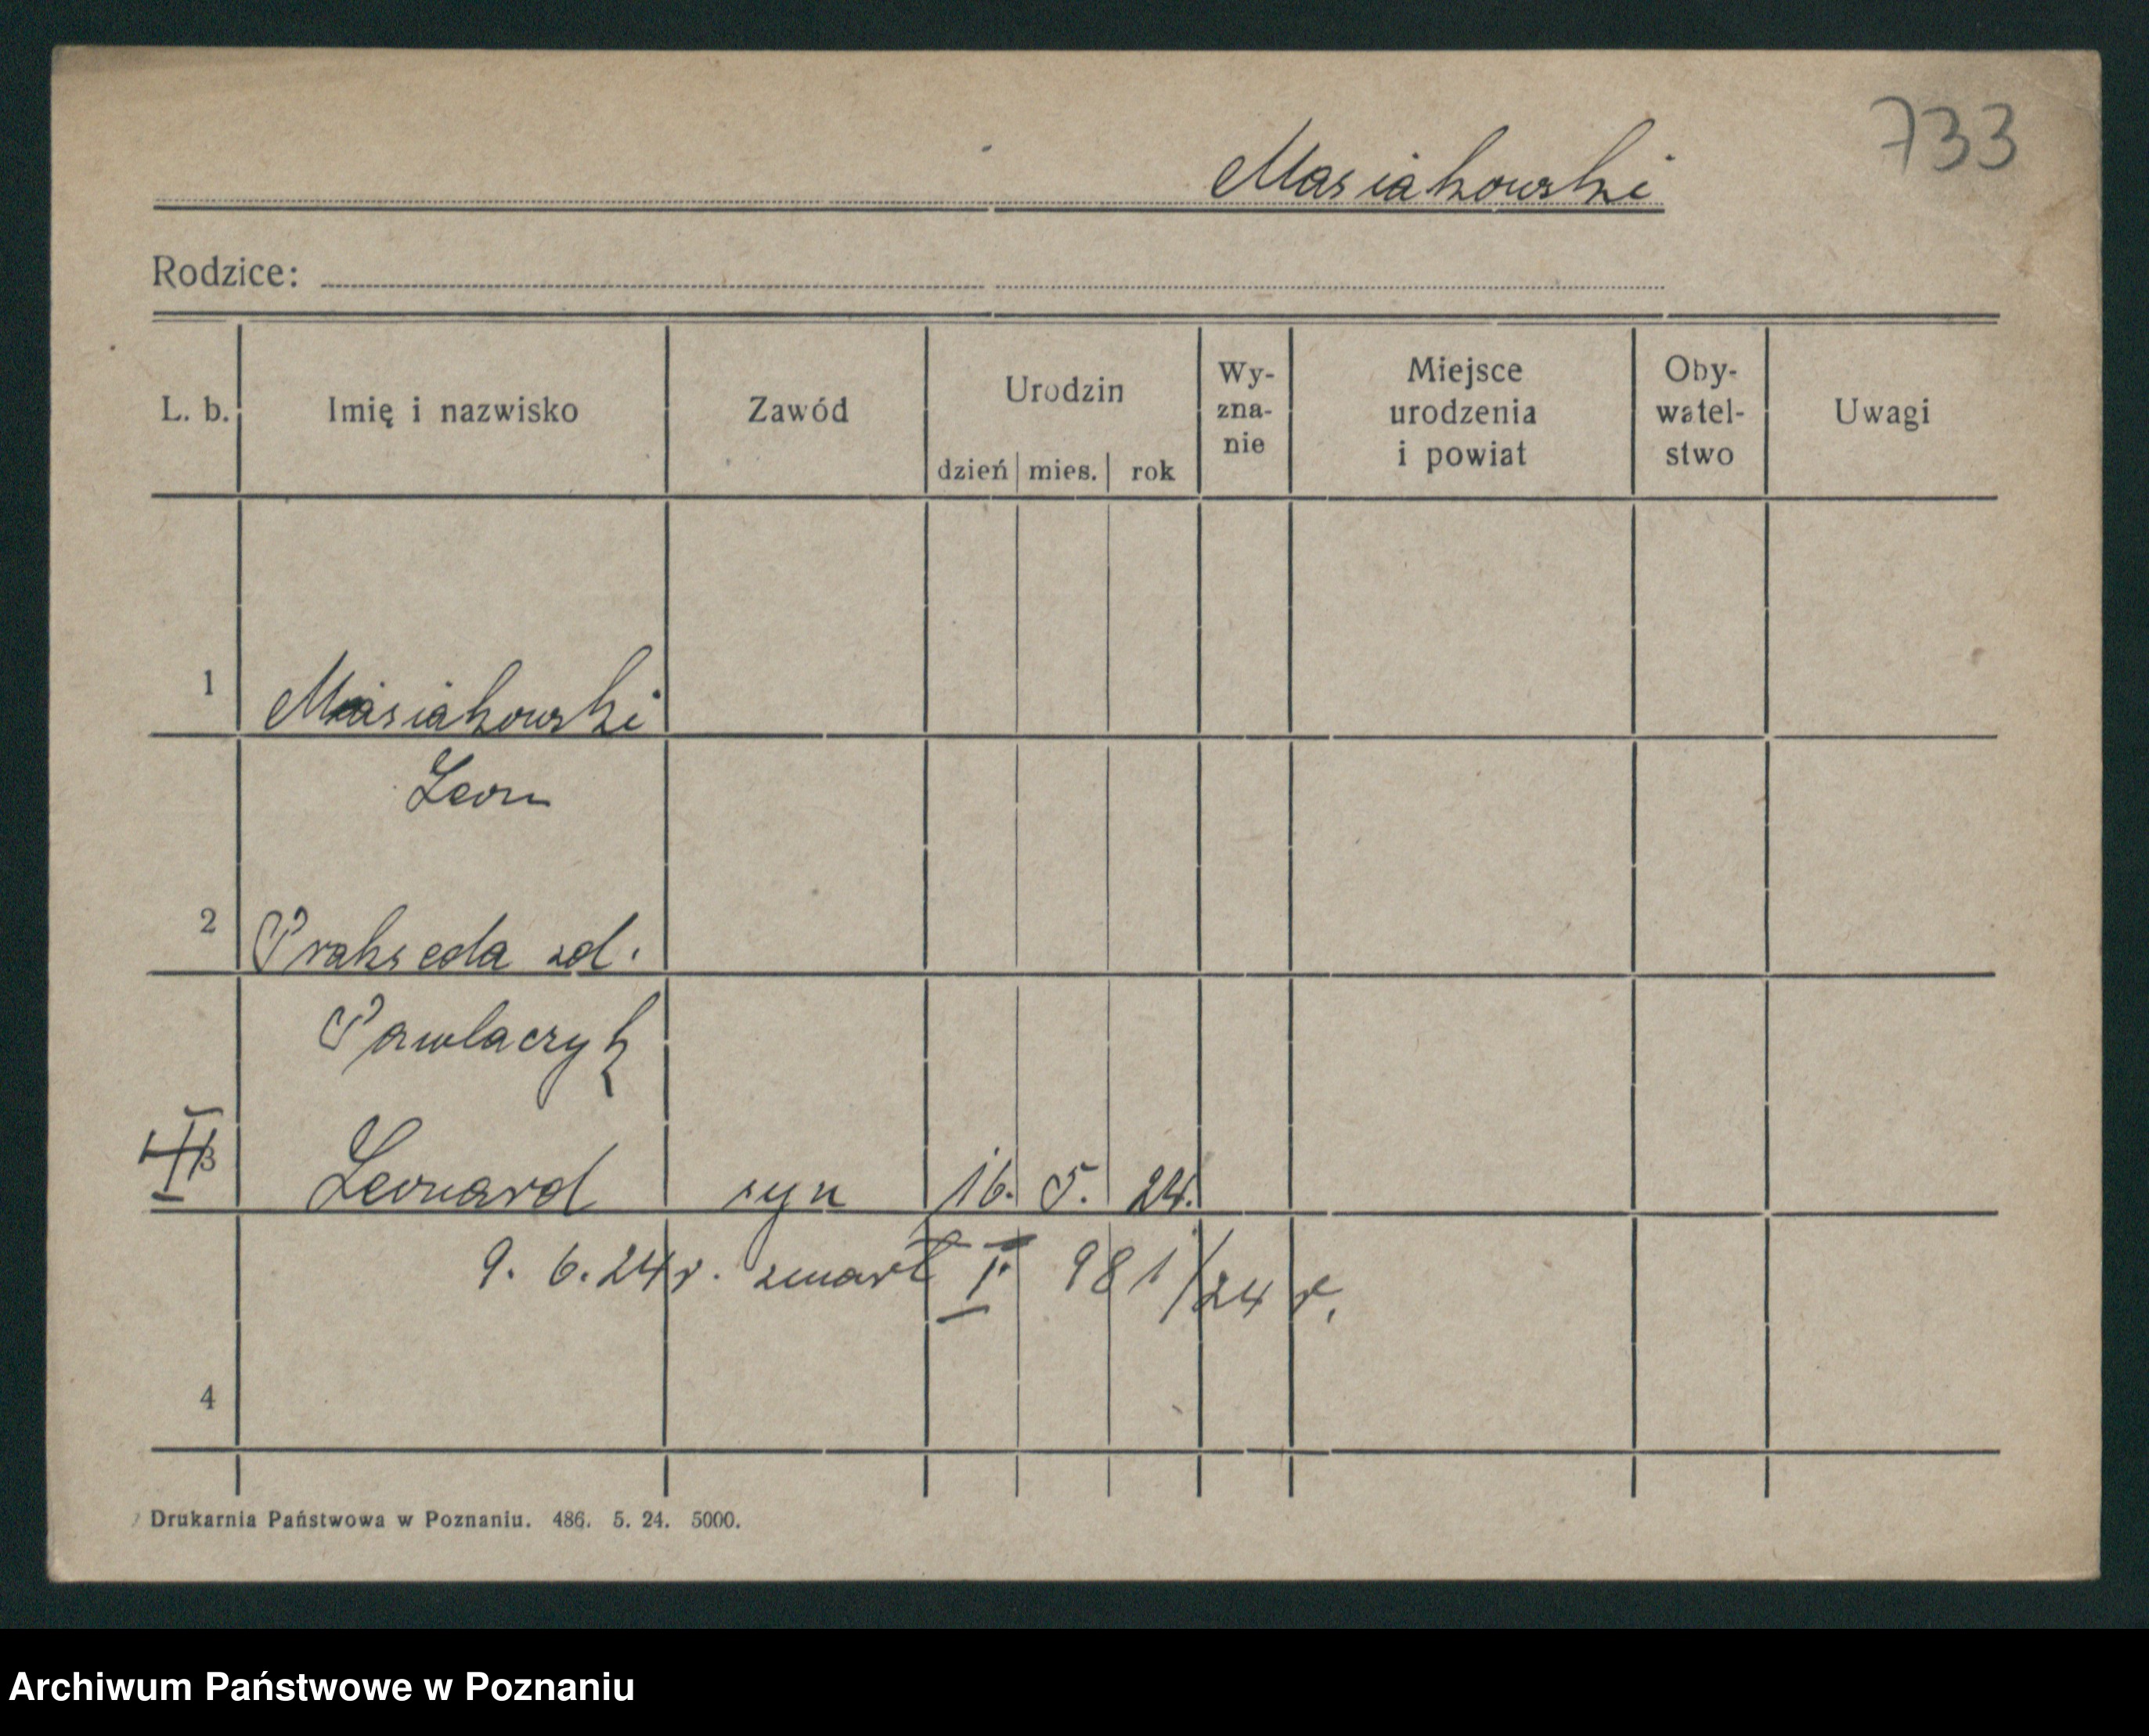 733
Masiakowski
Rodzice:
L. b.
Imię i nazwisko
Zawód
Urodzin
dzień mies. rok
Wy-
zna-
nie
Miejsce
urodzenia
i powiat
Oby-
watel-
stwo
Uwagi
1 Masiakowski
Leon
2 Prakseda zd.
Pawlaczyk
3 Leonard syn 16. 5. 24.
9. 6. 24 r. zmarł I. 981/24 r.
4
Drukarnia Państwowa w Poznaniu. 486. 5. 24. 5000.
Archiwum Państwowe w Poznaniu